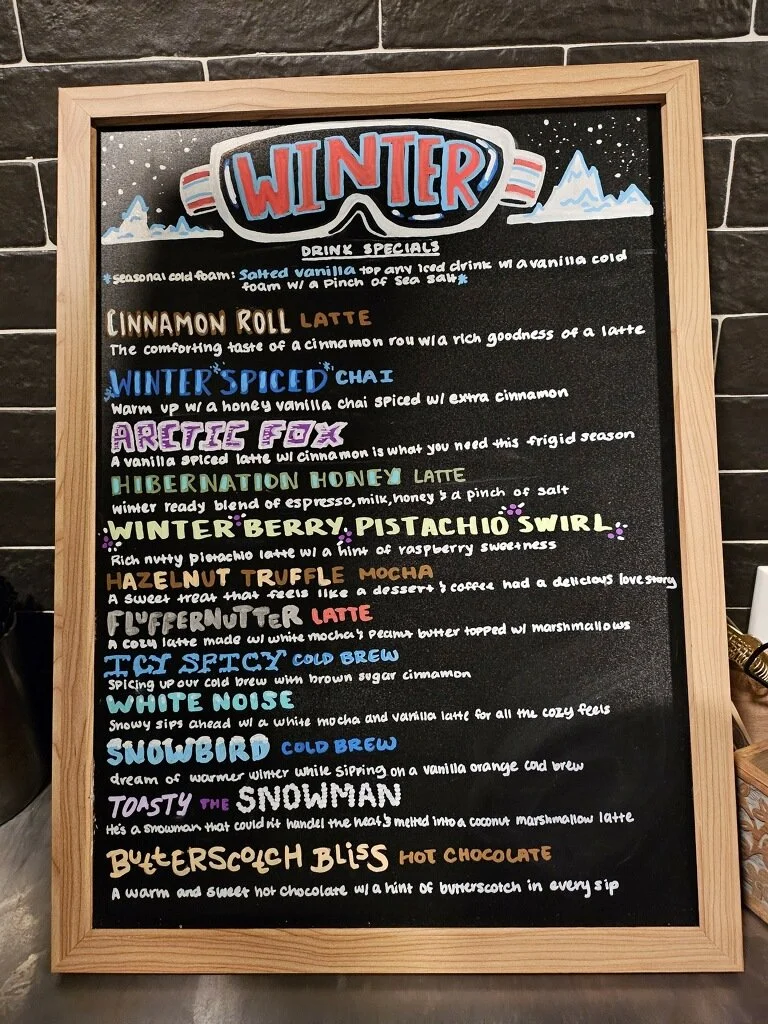 WINTER
DRINK SPECIALS
*seasonal cold foam: Salted vanilla top any iced drink w/ a vanilla cold
foam w/ a pinch of sea salt*
CINNAMON ROLL LATTE
The comforting taste of a cinnamon roll w/ a rich goodness of a latte
WINTER SPICED CHAI
Warm up w/ a honey vanilla chai spiced w/ extra cinnamon
ARCTIC FOX
A vanilla spiced latte w/ cinnamon is what you need this frigid season
HIBERNATION HONEY LATTE
winter ready blend of espresso, milk, honey & a pinch of salt
WINTER BERRY PISTACHIO SWIRL
Rich nutty pistachio latte w/ a hint of raspberry sweetness
HAZELNUT TRUFFLE MOCHA
A sweet treat that feels like a dessert & coffee had a delicious love story
FLUFFERNUTTER LATTE
A cozy latte made w/ white mocha & peanut butter topped w/ marshmallows
ICY SPICY COLD BREW
Spicing up our cold brew with brown sugar cinnamon
WHITE NOISE
Snowy sips ahead w/ a white mocha and vanilla latte for all the cozy feels
SNOWBIRD COLD BREW
dream of warmer winter while sipping on a vanilla orange cold brew
TOASTY THE SNOWMAN
He's a snowman that couldn't handel the heat & melted into a coconut marshmallow latte
BUTTERSCOTCH BLISS HOT CHOCOLATE
A warm and sweet hot chocolate w/ a hint of butterscotch in every sip